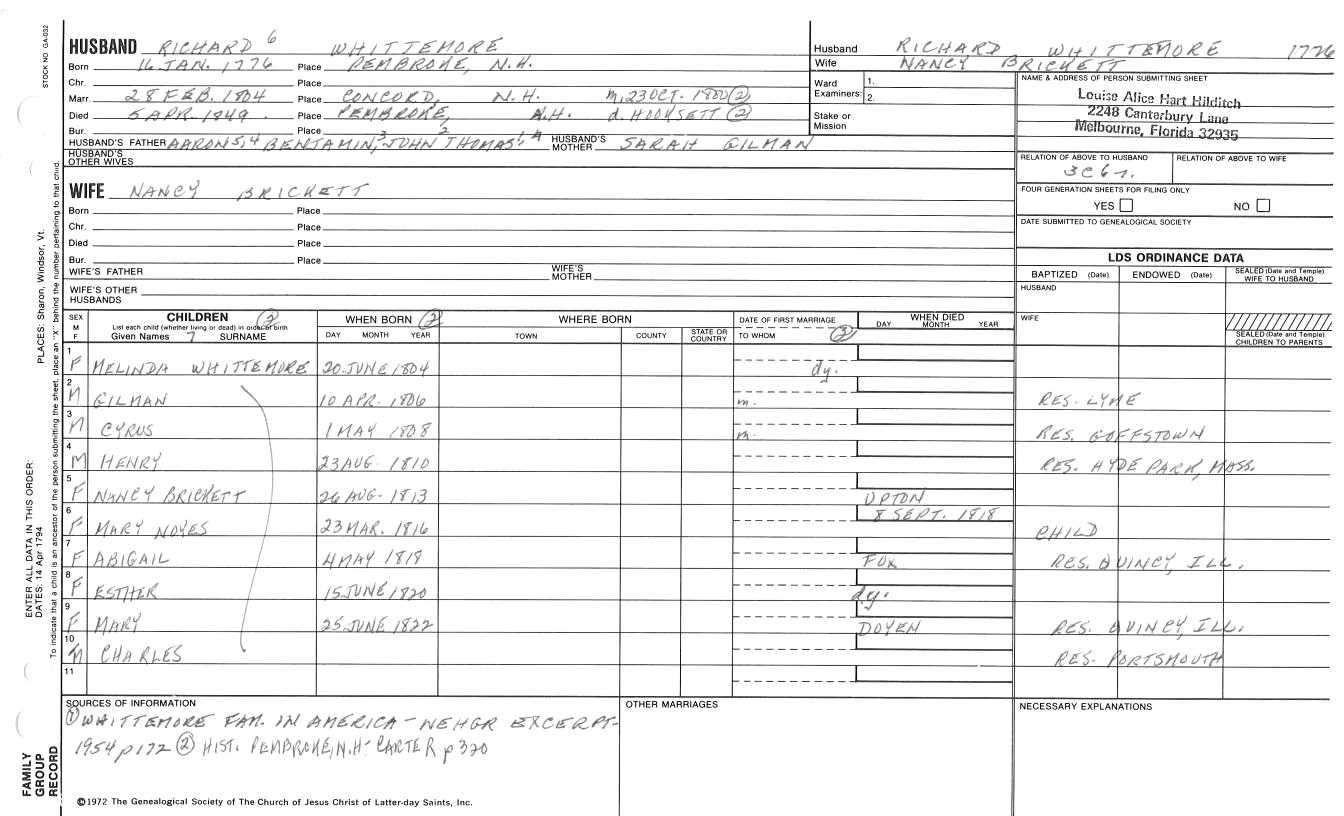 STOCK NO GA-032
HUSBAND RICHARD 6 WHITTEMORE
Born 16 JAN. 1776 Place PEMBROKE, N.H.
Chr. Place
Marr. 28 FEB. 1804 Place CONCORD, N.H. m. 23 OCT. 1800 (2)
Died 5 APR. 1849. Place PEMBROKE, N.H. d. HOOKSETT (2)
Bur. Place
HUSBAND'S FATHER AARON 5, 4 BENJAMIN, 3 JOHN 2 THOMAS, 1 HUSBAND'S MOTHER SARAH GILMAN
HUSBAND'S OTHER WIVES
WIFE NANCY BRICKETT
Born Place
Chr. Place
Died Place
Bur. Place
WIFE'S FATHER WIFE'S MOTHER
WIFE'S OTHER HUSBANDS
Husband RICHARD WHITTEMORE 1776
Wife NANCY BRICKETT
Ward Examiners: 1.
2.
Stake or Mission
NAME & ADDRESS OF PERSON SUBMITTING SHEET
Louise Alice Hart Hilditch
2248 Canterbury Lane
Melbourne, Florida 32935
RELATION OF ABOVE TO HUSBAND RELATION OF ABOVE TO WIFE
3C6r.
FOUR GENERATION SHEETS FOR FILING ONLY
YES NO
DATE SUBMITTED TO GENEALOGICAL SOCIETY
LDS ORDINANCE DATA
BAPTIZED (Date) ENDOWED (Date) SEALED (Date and Temple) WIFE TO HUSBAND
HUSBAND
WIFE
SEALED (Date and Temple) CHILDREN TO PARENTS
SEX M F CHILDREN (2) WHEN BORN (2) WHERE BORN DATE OF FIRST MARRIAGE WHEN DIED
List each child (whether living or dead) in order of birth
Given Names 7 SURNAME DAY MONTH YEAR TOWN COUNTY STATE OR COUNTRY TO WHOM (2) DAY MONTH YEAR
1 F MELINDA WHITTEMORE 20 JUNE 1804 dy.
2 M GILMAN 10 APR. 1806 m. RES. LYME
3 M CYRUS 1 MAY 1808 m. RES. GOFFSTOWN
4 M HENRY 23 AUG. 1810 RES. HYDE PARK, MASS.
5 F NANCY BRICKETT 26 AUG. 1813 UPTON
6 F MARY NOYES 23 MAR. 1816 8 SEPT. 1818 CHILD
7 F ABIGAIL 4 MAY 1818 FOX RES. QUINCY, ILL.
8 F ESTHER 15 JUNE 1820 d.y.
9 F MARY 25 JUNE 1822 DOYEN RES. QUINCY, ILL.
10 M CHARLES RES. PORTSMOUTH
11
SOURCES OF INFORMATION
(1) WHITTEMORE FAM. IN AMERICA - NEHGR EXCERPT-
1954 p 172 (2) HIST. PEMBROKE, N.H - CARTER p 320
OTHER MARRIAGES
NECESSARY EXPLANATIONS
©1972 The Genealogical Society of The Church of Jesus Christ of Latter-day Saints, Inc.
FAMILY GROUP RECORD
ENTER ALL DATA IN THIS ORDER:
DATES: 14 Apr 1794 PLACES: Sharon, Windsor, Vt.
To indicate that a child is an ancestor of the person submitting the sheet, place an "X" behind the number pertaining to that child.